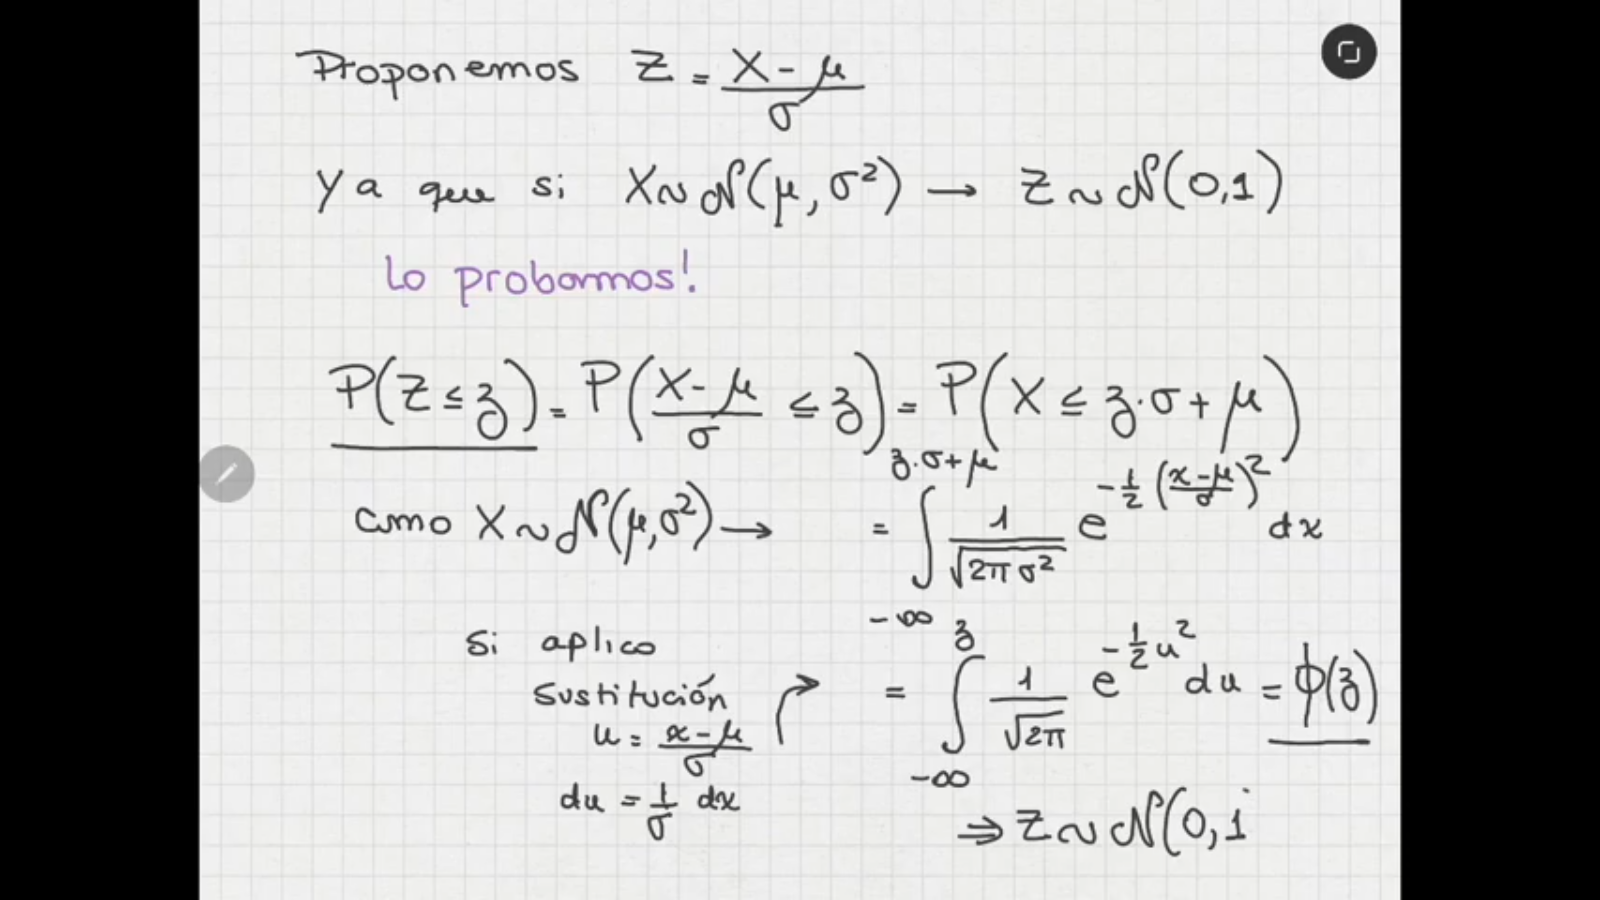 Proponemos Z = (X - μ)/σ
Ya que si X ~ N(μ, σ²) → Z ~ N(0,1)
Lo probamos!
P(Z ≤ z) = P((X - μ)/σ ≤ z) = P(X ≤ z·σ + μ)
como X ~ N(μ, σ²) → = ∫_{-∞}^{z·σ+μ} 1/√(2πσ²) e^{-1/2 ((x-μ)/σ)²} dx
Si aplico
sustitución
u = (x - μ)/σ
du = 1/σ dx
= ∫_{-∞}^{z} 1/√(2π) e^{-1/2 u²} du = ϕ(z)
⇒ Z ~ N(0, 1